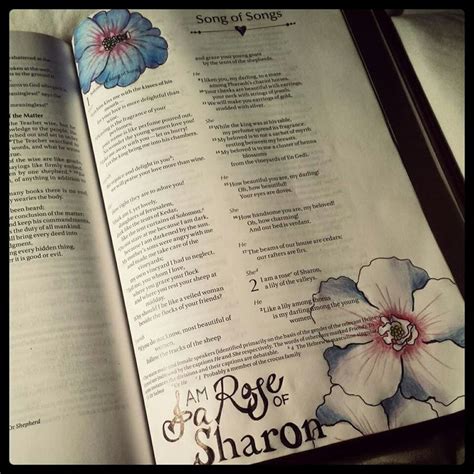 embattled at the
meaningless!"
meaningless!"
of the Matter
the Teacher wise, but
knowledge to the people.
searched out and set in
The Teacher searched
of the wise are like goads,
sayings like firmly
one shepherd.
of anything in addition
many books there is no end,
wearies the body.
the conclusion of the matter:
and keep his commandments,
the duty of all mankind.
will bring every deed into
ing every hidden thing,
er it is good or evil.
Or Shepherd
Song of Songs
kiss me with the kisses of his
is more delightful than
fragrance of your
like perfume poured out.
wonder the young women love you!
me away with you—let us hurry!
the king bring me into his chambers.
rejoice and delight in you;
will praise your love more than wine.
right they are to adore you!
am I, yet lovely,
daughters of Jerusalem,
like the tents of Kedar,
like the tent curtains of Solomon.
stare at me because I am dark,
I am darkened by the sun.
mother's sons were angry with me
and made me take care of the
vineyards;
my own vineyard I had to neglect.
me, you whom I love,
where you graze your flock
and where you rest your sheep at
midday.
Why should I be like a veiled woman
beside the flocks of your friends?
you do not know, most beautiful of
women,
follow the tracks of the sheep
and graze your young goats
by the tents of the shepherds.
He
9 I liken you, my darling, to a mare
among Pharaoh's chariot horses.
10 Your cheeks are beautiful with earrings,
your neck with strings of jewels.
11 We will make you earrings of gold,
studded with silver.
She
12 While the king was at his table,
my perfume spread its fragrance.
13 My beloved is to me a sachet of myrrh
resting between my breasts.
14 My beloved is to me a cluster of henna
blossoms
from the vineyards of En Gedi.
He
15 How beautiful you are, my darling!
Oh, how beautiful!
Your eyes are doves.
She
16 How handsome you are, my beloved!
Oh, how charming!
And our bed is verdant.
He
17 The beams of our house are cedars;
our rafters are firs.
She
2 I am a rose of Sharon,
a lily of the valleys.
He
2 Like a lily among thorns
is my darling among the young
women.
female speakers (identified primarily on the basis of the gender of the relevant Hebrew
by the captions He and She respectively. The words of others are marked Friends.
divisions and their captions are debatable.
Probably a member of the crocus family
I AM
a Rose OF
Sharon